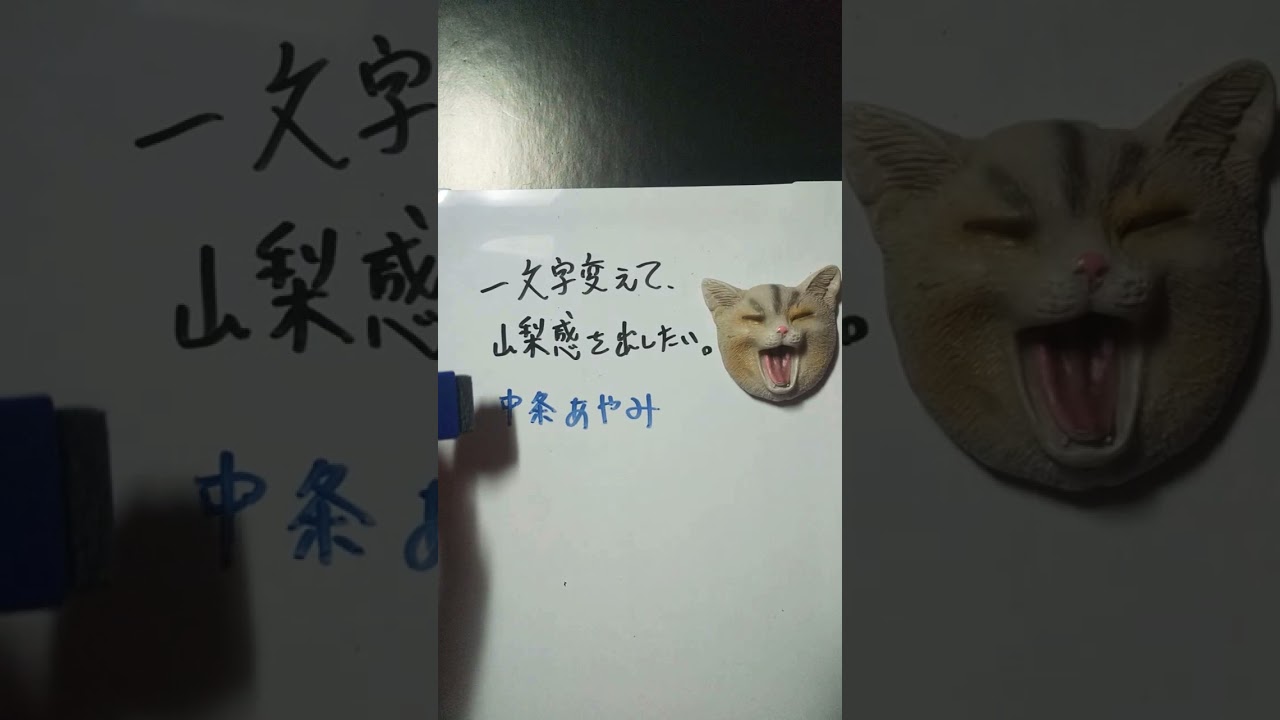 一文字変えて、
山梨感を出したい。
中条あやみ